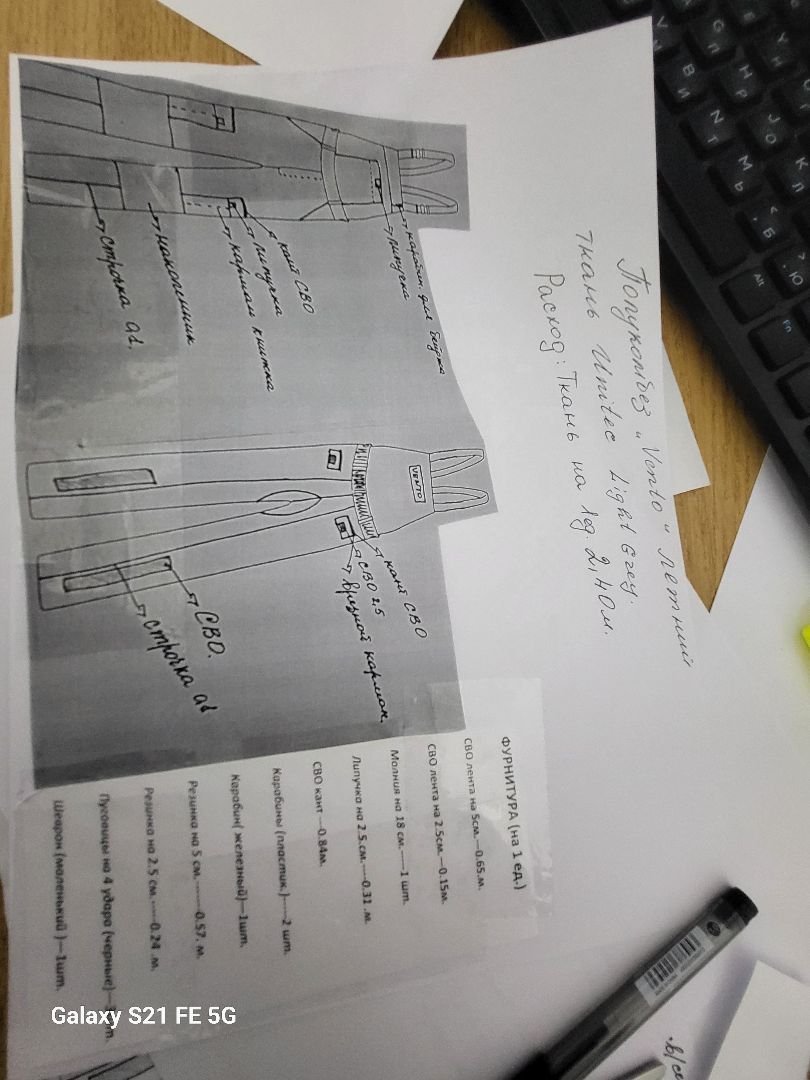 Полукомбез „Vento" летний
ткань Unitec Light Grey.
Расход: Ткань на 1ед. 2,40м.
карабин для бейджа
липучка
кант СВО
липучка
карман книжка
наколенник
строчка а1.
VENTO
кант СВО
СВО 2,5
Врезной карман.
СВО.
строчка а1
ФУРНИТУРА (на 1 ед.)
СВО лента на 5см.—0.65.м.
СВО лента на 2.5см.—0.15м.
Молния на 18 см.----1 шт.
Липучка на 2.5.см.----0.31 .м.
СВО кант ---0.84м.
Карабины (пластик.)-----2 шт.
Карабин( железный)—1шт.
Резинка на 5 см.-------0.57. м.
Резинка на 2.5 см.-----0.24 .м.
Пуговицы на 4 удара (черные)—
Шеврон (маленький )—1шт.
Galaxy S21 FE 5G